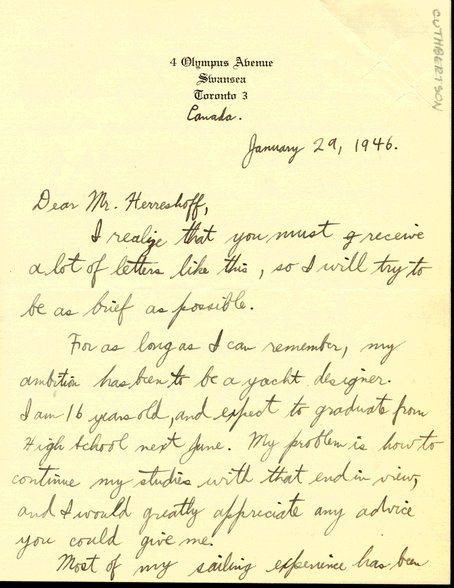 CUTHBERTSON
4 Olympus Avenue
Swansea
Toronto 3
Canada.
January 29, 1946.
Dear Mr. Herreshoff,
I realize that you must g receive
a lot of letters like this, so I will try to
be as brief as possible.
For as long as I can remember, my
ambition has been to be a yacht designer.
I am 16 years old, and expect to graduate from
High School next June. My problem is how to
continue my studies with that end in view,
and I would greatly appreciate any advice
you could give me.
Most of my sailing experience has been